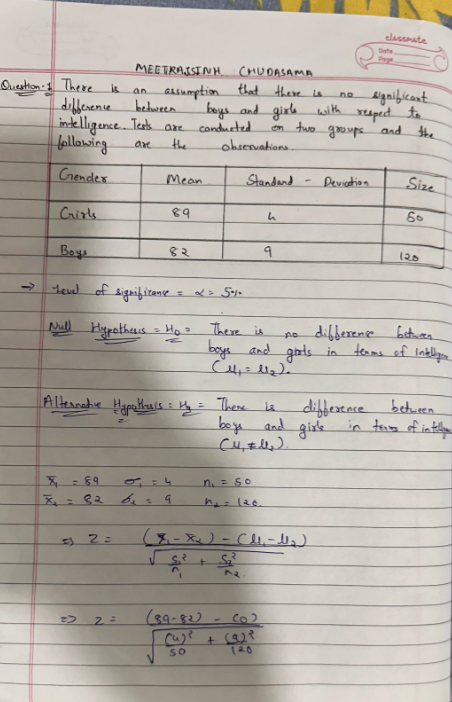 classmate
Date
Page
MEETRAJSINH CHUDASAMA
Question-1 There is an assumption that there is no significant
difference between boys and girls with respect to
intelligence. Tests are conducted on two groups and the
following are the observations.
Gender Mean Standard - Deviation Size
Girls 89 4 50
Boys 82 9 120
→ Level of significance = α = 5%
Null Hypothesis = H₀ = There is no difference between
boys and girls in terms of Intellige
(μ₁ = μ₂).
Alternative Hypothesis = H₁ = There is difference between
boys and girls in terms of intellige
(μ₁ ≠ μ₂).
x̄₁ = 89 σ₁ = 4 n₁ = 50
x̄₂ = 82 σ₂ = 9 n₂ = 120.
⇒ Z = (x̄₁ - x̄₂) - (μ₁ - μ₂)
√ S₁²/n₁ + S₂²/n₂
⇒ Z = (89-82) - (0)
√ (4)²/50 + (9)²/120